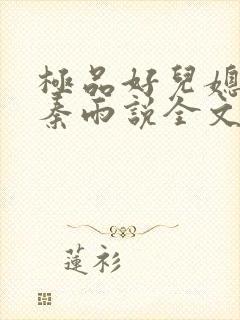 極品好兒媳
秦雨説全文
蓮衫